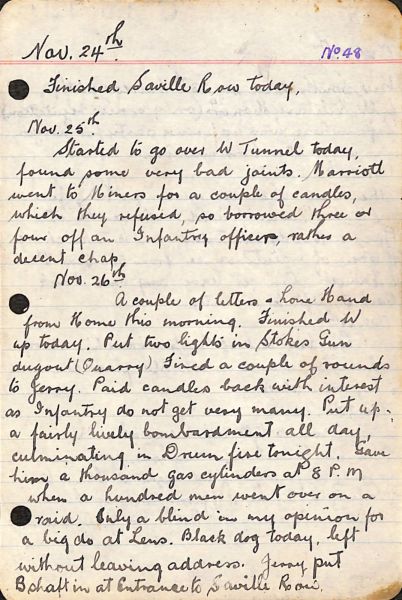 Nov. 24th No. 48
Finished Saville Row today.
Nov. 25th
Started to go over W Tunnel today,
found some very bad joints. Marriott
went to Miners for a couple of candles,
which they refused, so borrowed three or
four off an Infantry officer, rather a
decent chap.
Nov. 26th
A couple of letters & Lone Hand
from Home this morning. Finished W
up today. Put two lights in Stokes Gun
dugout (Quarry) Fired a couple of rounds
to Jerry. Paid candles back with interest
as Infantry do not get very many. Put up
a fairly lively bombardment all day,
culminating in Drum fire tonight. Gave
him a thousand gas cylinders at 8 P.M
when a hundred men went over on a
raid. Only a blind in my opinion for
a big do at Lens. Black dog today, left
without leaving address. Jerry put
B shaft in at Entrance to Saville Row.